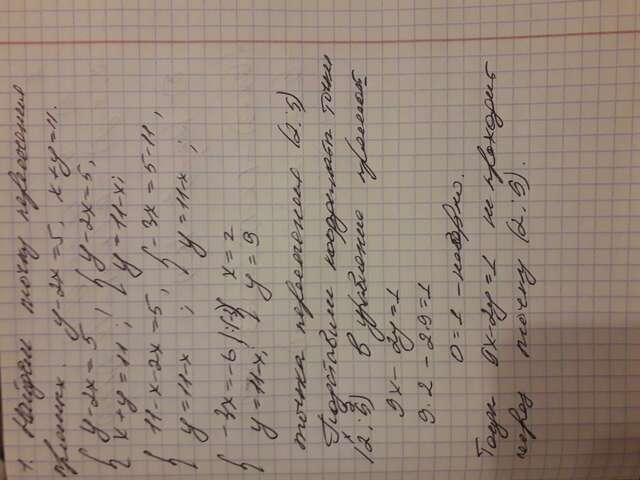 1. Найдем точку пересечения
прямых. y-2x=5, x+y=11.
{ y-2x=5 ; { y-2x=5,
{ x+y=11 ; { y=11-x;
{ 11-x-2x=5, { -3x=5-11,
{ y=11-x ; { y=11-x ;
{ -3x=-6 |:(-3) { x=2
{ y=11-x; { y=9
точка пересечения (2;9)
Подставим координаты точки
(2;9) в уравнение прямой
9x-2y=1
9·2-2·9=1
0=1 - неверно.
9x-2y=1 не проходит
через точку (2;9).